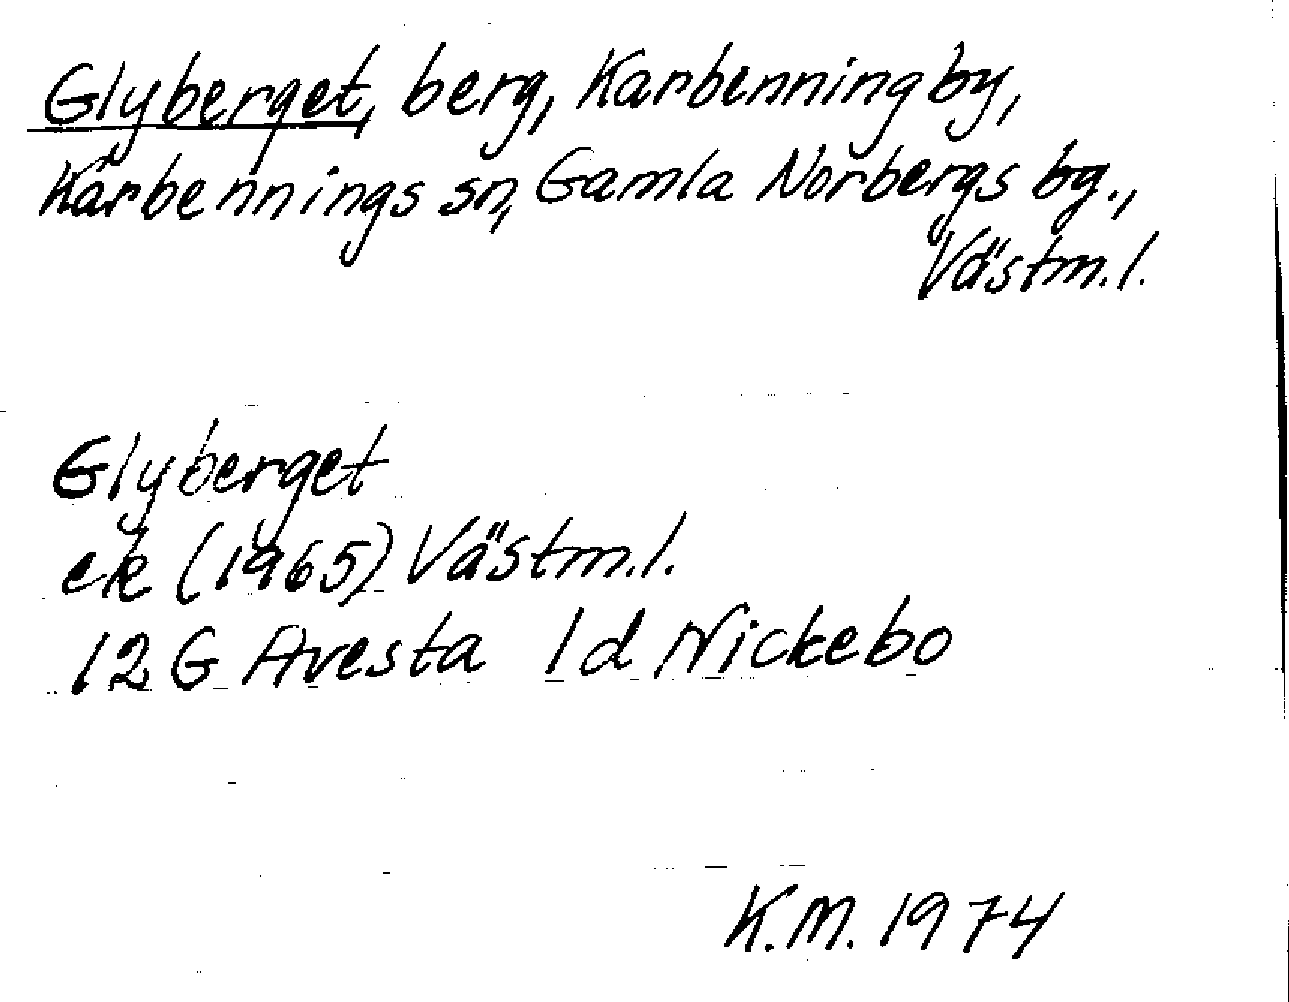 Glyberget, berg, Karbenning by,
Karbennings sn, Gamla Norbergs bg.,
Västm.l.
Glyberget
ek (1965) Västm.l.
12 G Avesta 1d Nickebo
K.M. 1974